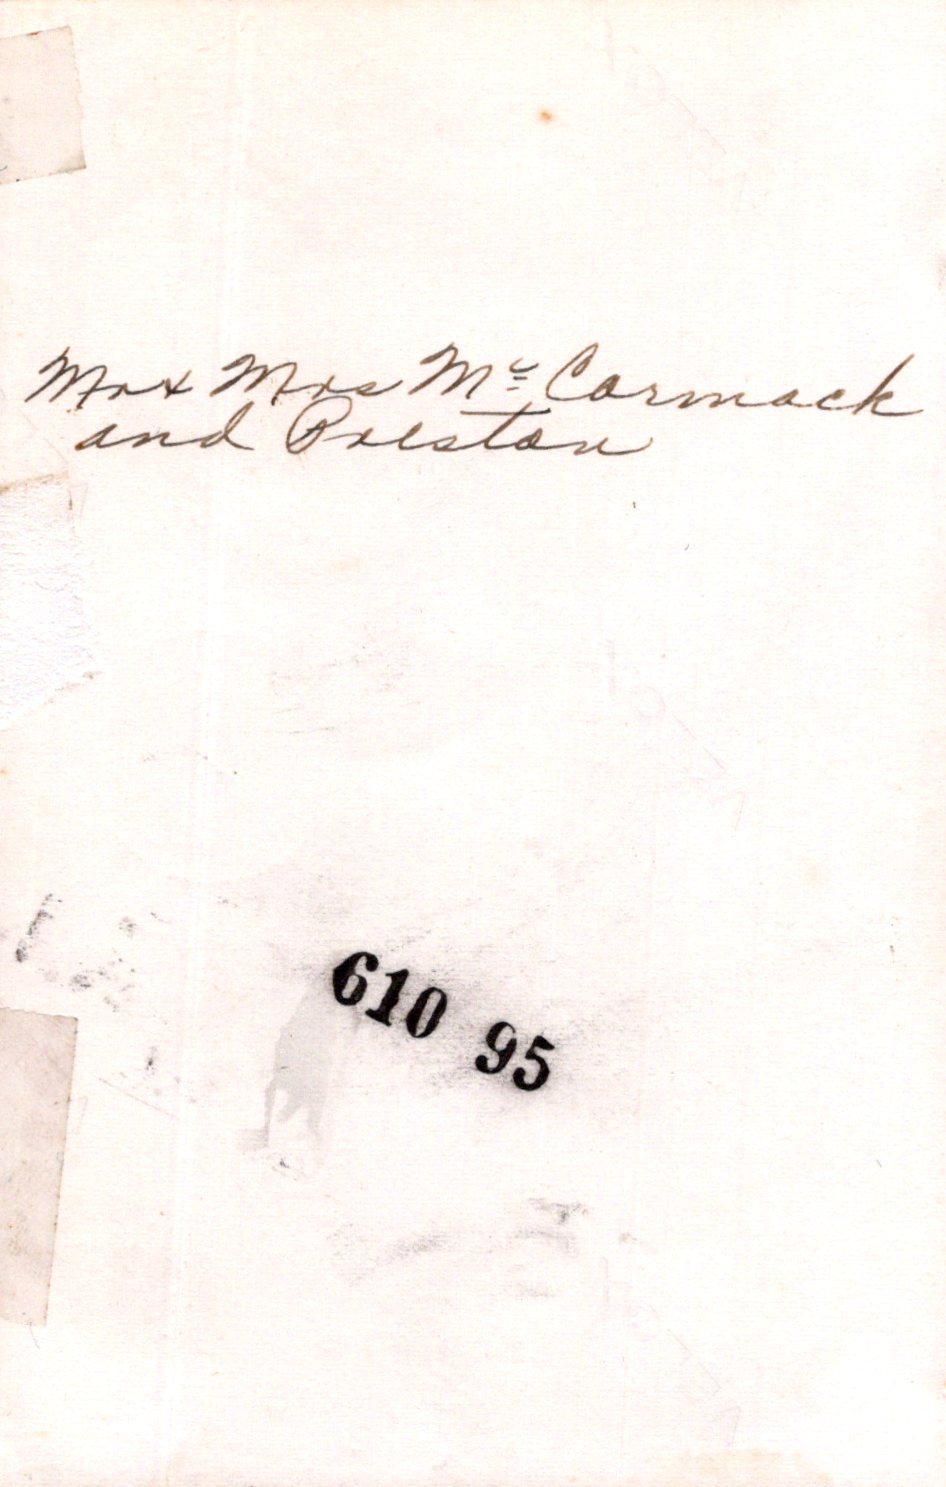 Mr + Mrs Mc Cormack
and Preston
610 95